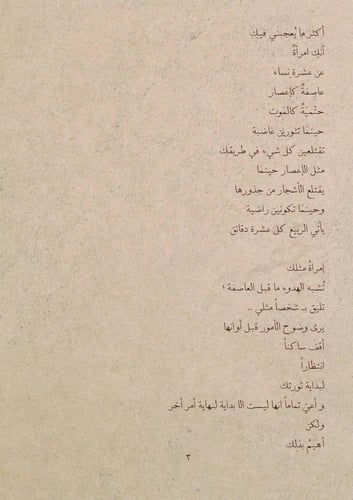 أكثر ما يُعجبني فيك
أنك امرأةٌ
عن عشرة نساء
عاصفةٌ كإعصار
حتْميّةٌ كالموت
حينما تثورين غاضبة
تقتلعين كل شيء في طريقك
مثل الإعصار حينما
يقتلع الأشجار من جذورها
وحينما تكونين راضية
يأتي الربيع كل عشرة دقائق
إمرأةُ مثلك
تُشبه الهدوء ما قبل العاصفة !
تليق بـ شخصاً مثلي ..
يرى وضوح الأمور قبل أوانها
أقف ساكناً
انتظاراً
لبداية ثورتك
و أعيّ تماماً انها ليست الا بداية لنهاية أمر أخر
ولكن
أهيمُ بذلك
٣